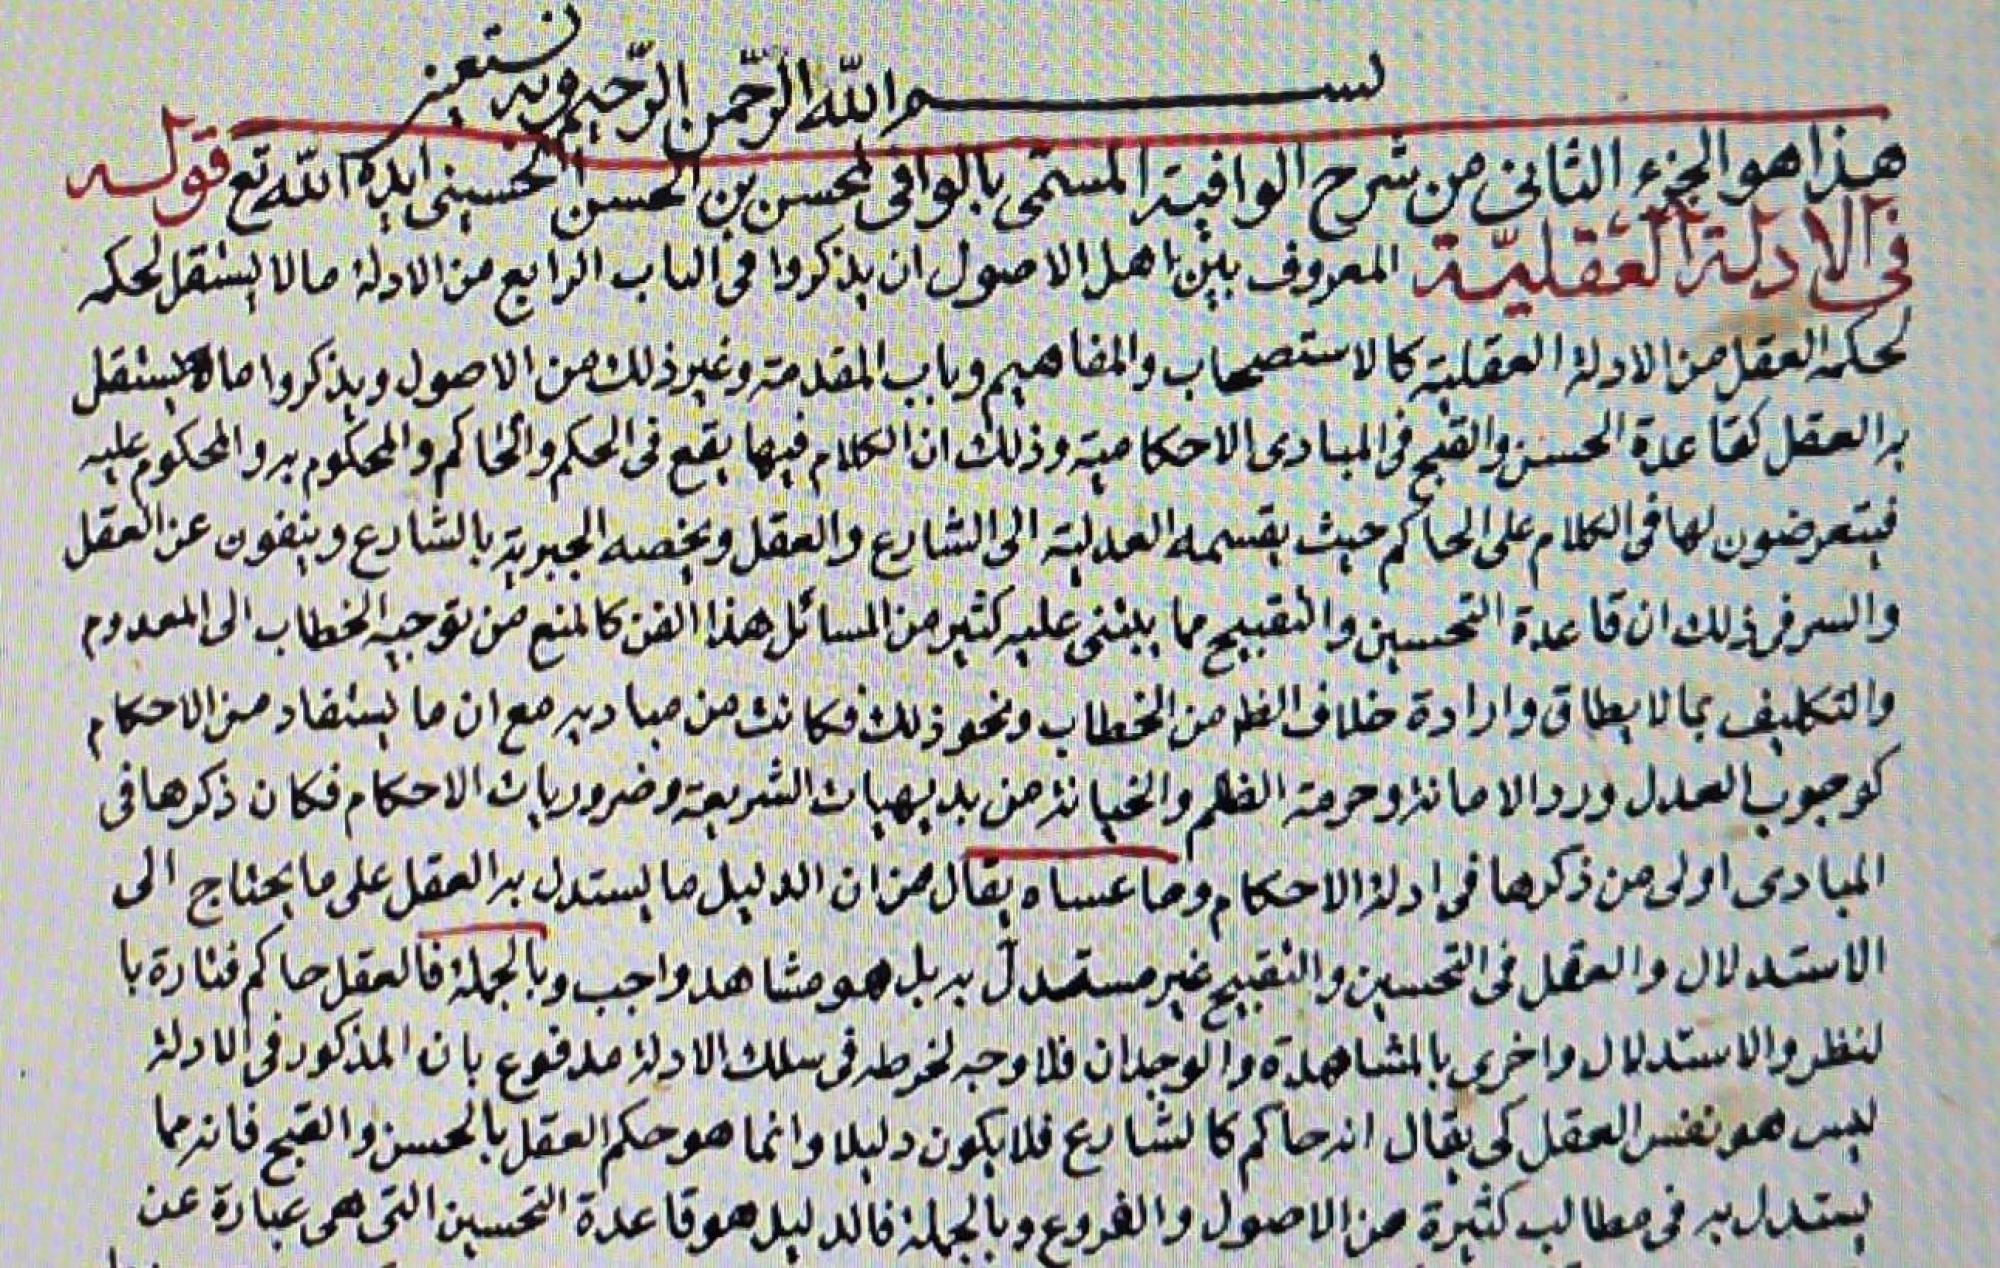 بسم الله الرحمن الرحيم وبه نستعين
هذا هو الجزء الثانى من شرح الوافية المسمى بالوافى لمحسن بن الحسن الحسينى ايده الله تع قوله
فى الادلة العقلية المعروف بين اهل الاصول ان يذكروا فى الباب الرابع من الادلة مالا يستقل لحكمه
لحكمه العقل من الادلة العقلية كالاستصحاب والمفاهيم وباب المقدمة وغير ذلك من الاصول ويذكروا ما يستقل
به العقل كقاعدة الحسن والقبح فى المبادى الاحكامية وذلك ان الكلام فيها يقع فى الحكم والحاكم والمحكوم به والمحكوم عليه
فيتعرضون لها فى الكلام على الحاكم حيث يقسمه العدلية الى الشارع والعقل ويخصه الجبرية بالشارع وينفون عن العقل
والسر فى ذلك ان قاعدة التحسين والتقبيح مما يبنى عليه كثير من المسائل هذا الفن كالمنع من توجيه الخطاب الى المعدوم
والتكليف بما لا يطاق وارادة خلاف الظ من الخطاب ونحو ذلك فكانت من مباديه مع ان ما يستفاد من الاحكام
كوجوب العدل ورد الامانة وحرمة الظلم والخيانة من بديهيات الشريعة وضروريات الاحكام فكان ذكرها فى
المبادى اولى من ذكرها فى ادلة الاحكام وما عساه يقال من ان الدليل ما يستدل به العقل على ما يحتاج الى
الاستدلال والعقل فى التحسين والتقبيح غير مستدل به بل هو مشاهد واجب وبالجملة فالعقل حاكم فتارة با
لنظر والاستدلال واخرى بالمشاهدة والوجدان فلا وجه لخرطه فى سلك الادلة مدفوع بان المذكور فى الادلة
ليس هو نفس العقل كى يقال انه حاكم كالشارع فلا يكون دليلا وانما هو حكم العقل بالحسن والقبح فانه مما
يستدل به فى مطالب كثيرة من الاصول والفروع وبالجملة فالدليل هو قاعدة التحسين التى هى عبارة عن